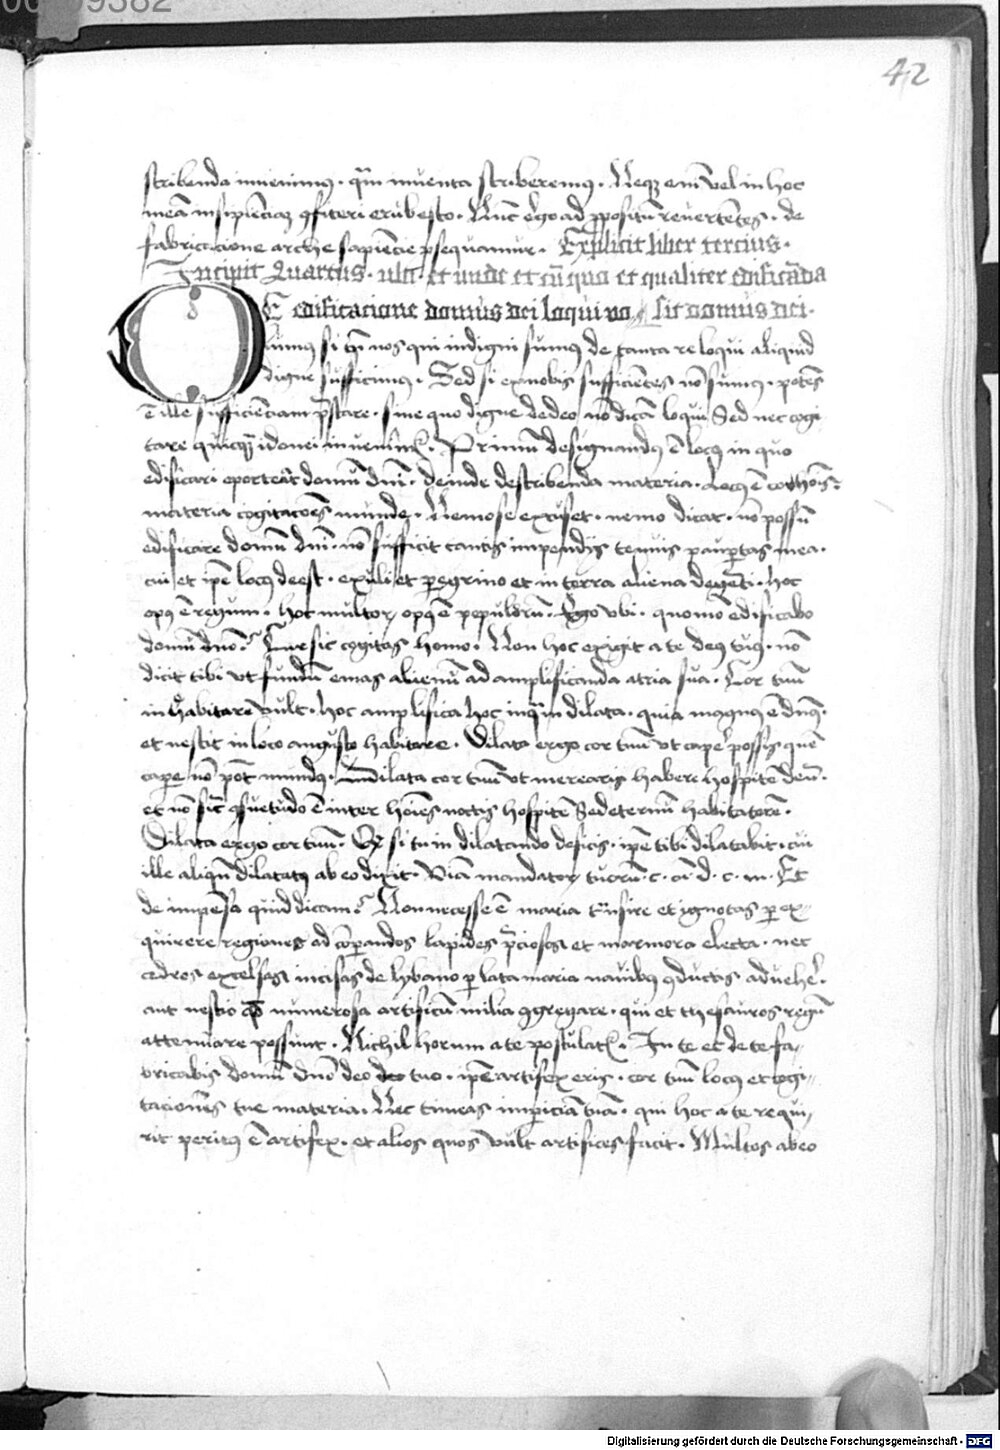 42
scribenda invenimus · qm̄ inventa scriberemus · Neqȝ enī vel in hoc
meā insipiēciā ꝯfiteri erubesco · Nūc ergo ad ꝓpositū revertētes · de
fabricacione arche sapiēcie ꝓsequamur · Explicit liber tercius ·
Incipit Quartus · ubi · et unde et cū quo et qualiter edificāda
DE edificacione domus dei loqui vo¶ sit domus dei ·
lumus si tn̄ nos qui indigni sumus de tanta re loqui aliquid
digne sufficimus · Sed si ex nobis sufficiētes nō sumus · potēs
ē ille sufficiēciam p̄stare · sine quo digne de deo nō dicā loqui Sed nec cogi
tare quicqȝ idonei invenimur · Primū designandus ē locus in quo
edificari oporteat domū dnī · deinde describenda materia · Locus ē cor hoīs ·
materia cogitacōes munde · Nemo se excuset · nemo dicat · nō possū
edificare domū dnī · nō sufficit tantis impendijs tenuis paupertas mea ·
cui et ipē locus deest · exuli et peregrino et in terra aliena degēti · hoc
opus ē regum · hoc multorꝝ opus ē populorū · Ergo ubi · quomō edificabo
domū dnō · Cur sic cogitas homo · Non hoc exigit a te deus tuus · nō
dicit tibi ut fundū emas alienū ad amplificanda atria sua · Cor tuū
inhabitare vult · hoc amplifica hoc inquā dilata · quia magnus ē dn̄s ·
et nescit in loco angusto habitare · Dilata ergo cor tuū ut capere possis quē
capere nō pōt mundus · Dilata cor tuū ut merearis habere hospitē deū ·
et nō sic ꝯsuetudo ē inter hoīes noctis hospitē Sed eternū habitatorē ·
Dilata ergo cor tuū · Et si tu in dilatando deficis · ipē tibi dilatabit · cui
ille aliqn̄ dilatatus ab eo dixit · Viā mandatorꝝ tuorū · c · cū d · c · m · Et
de impensa quid dicam · Non necesse ē maria tn̄sire et ignotas perex
quirere regiones ad cōparandos lapides p̄ciosos et marmora electa · nec
cedros excelsas incisas de lybano per lata maria navibus ꝯductis advehere ·
aut nescio numerosa artificū milia ꝯgregare · qui et thesauros regū
attenuare possunt · Nichil horum a te postulatur · In te et de te fa
bricabis domū dnō deo tuo · ipē artifex eris · cor tuū locus et cogi
taciones tue materia · Nec timeas impericiā tuā · qui hoc a te requi
rit peritus ē artifex · et alios quos vult artifices facit · Multos ab eo
Digitalisierung gefördert durch die Deutsche Forschungsgemeinschaft - DFG